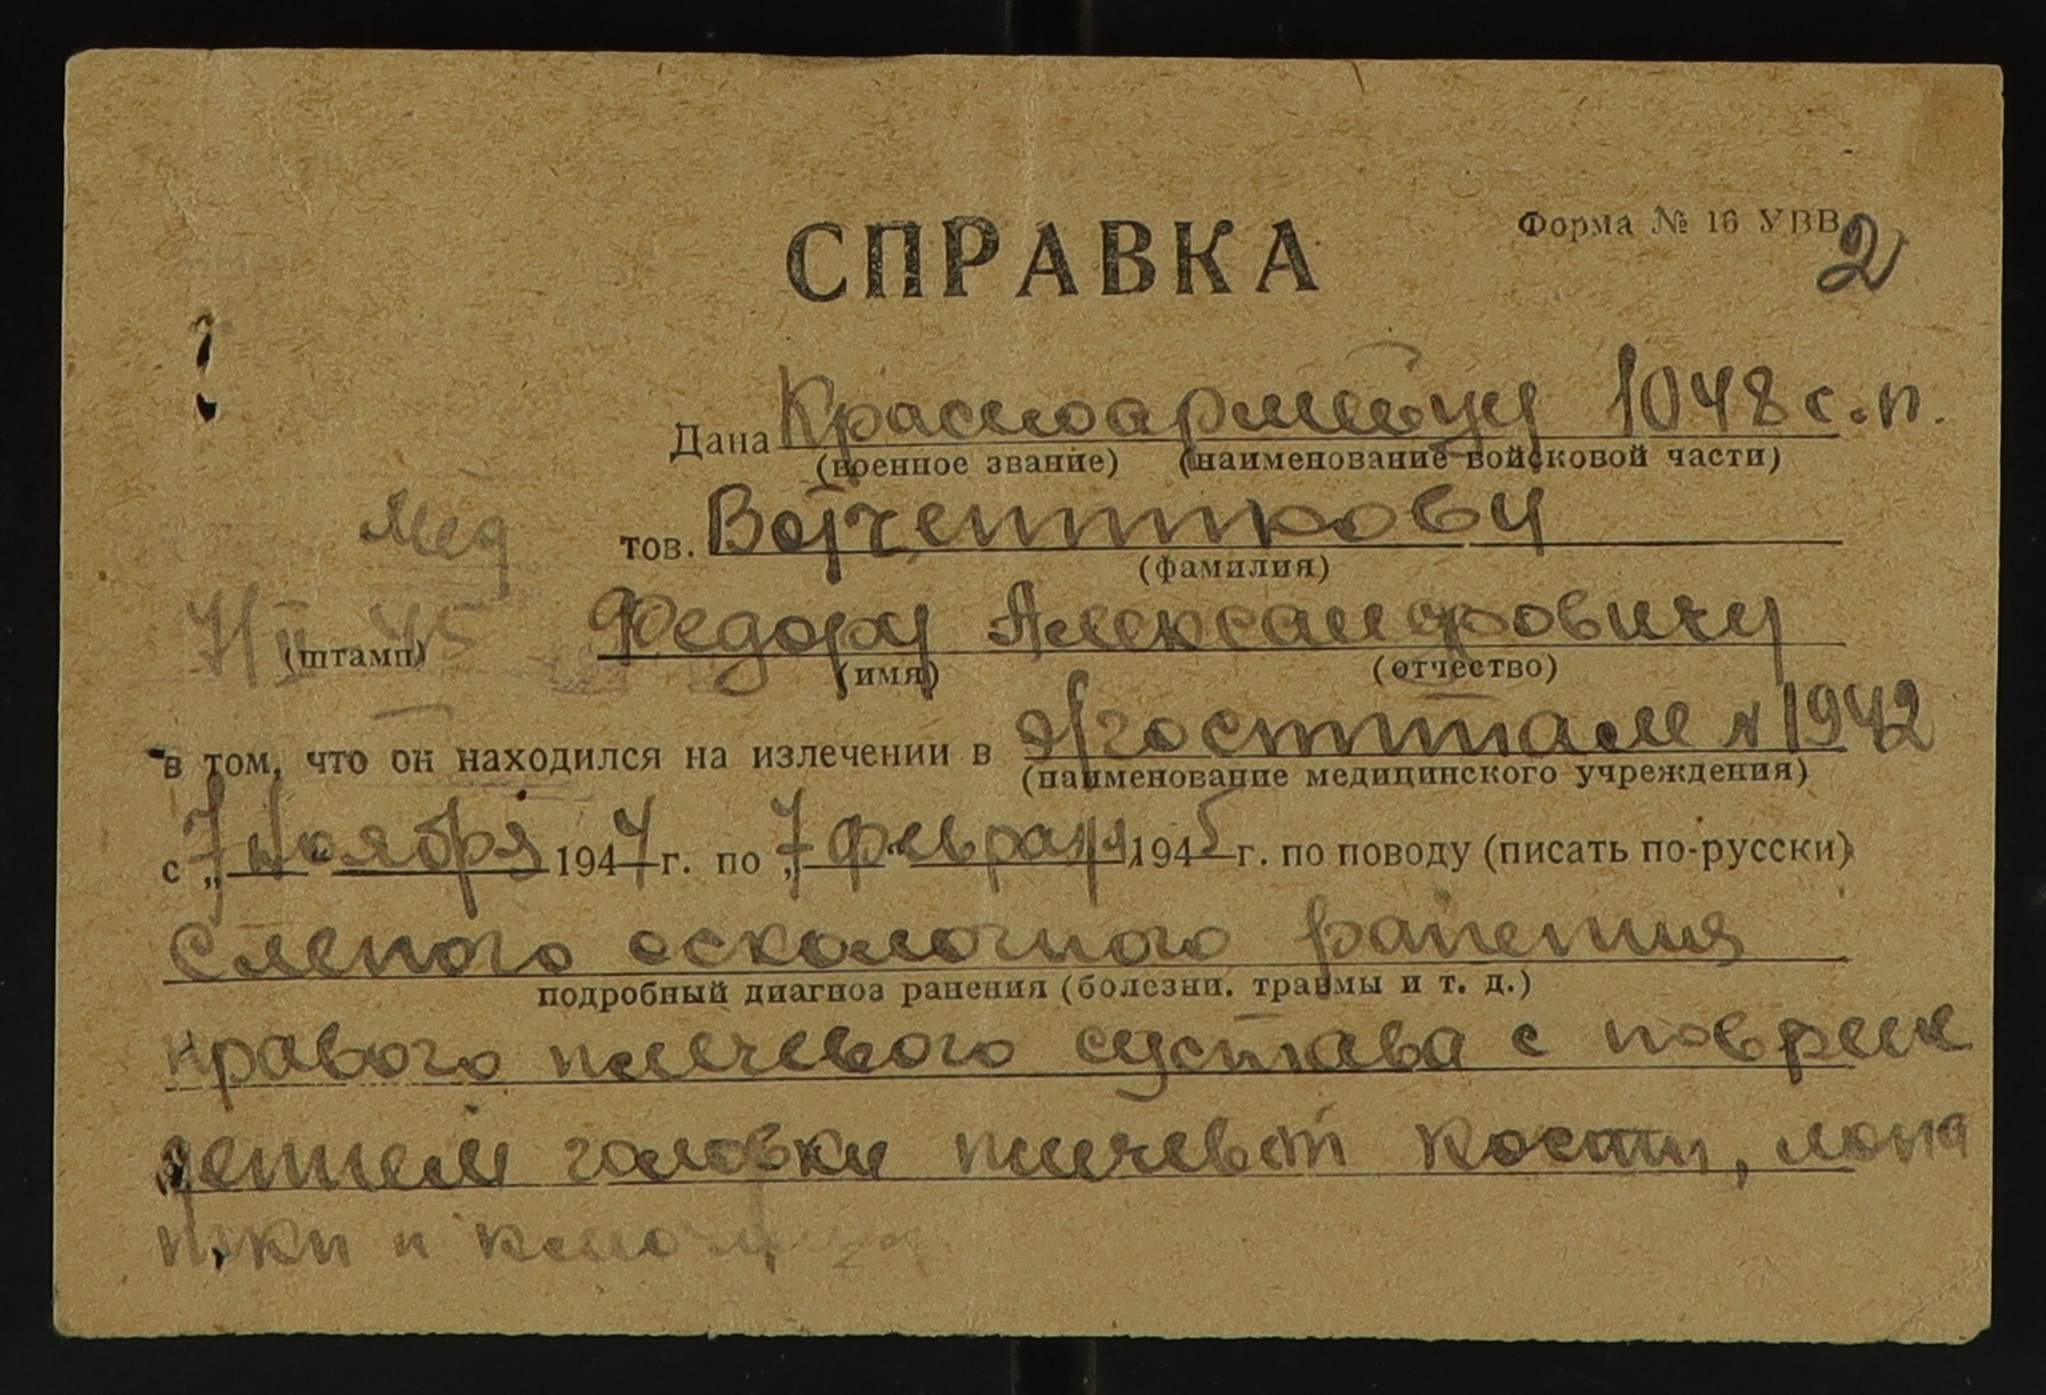 Форма № 16 УВВ
2
СПРАВКА
Дана Красноармейцу 1048 с.п.
(военное звание) (наименование войсковой части)
мед
тов. Войчешкову
(фамилия)
7/II 45
(штамп)
Федору Александровичу
(имя) (отчество)
в том, что он находился на излечении в э/госпитале № 1942
(наименование медицинского учреждения)
с „7“ ноября 1944 г. по „7“ февраля 1945 г. по поводу (писать по-русски)
Слепого осколочного ранения
подробный диагноз ранения (болезни, травмы и т. д.)
правого плечевого сустава с повреж
дением головки плечевой кости, лопа
тки и ключицы